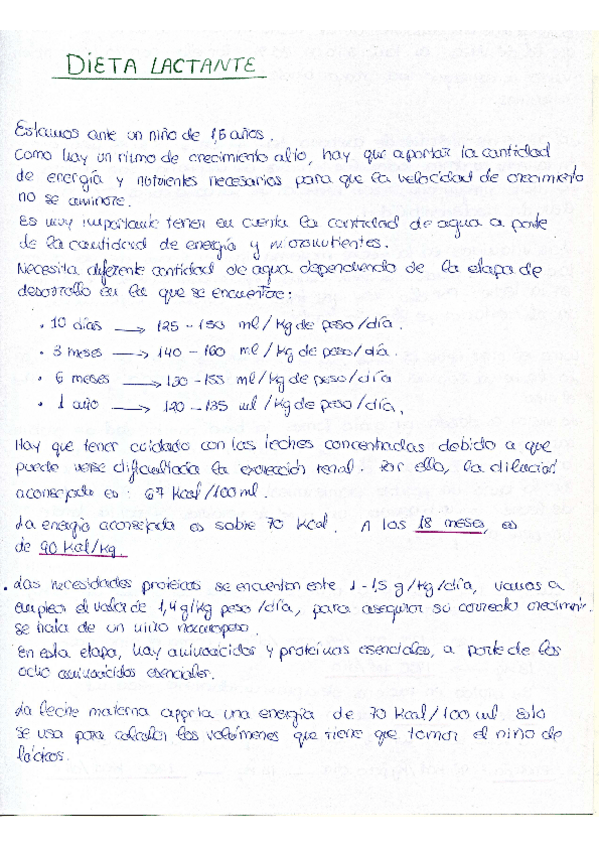 DIETA LACTANTE
Estamos ante un niño de 1,5 años.
Como hay un ritmo de crecimiento alto, hay que aportar la cantidad
de energía y nutrientes necesarios para que la velocidad de crecimiento
no se aminore.
Es muy importante tener en cuenta la cantidad de agua a parte
de la cantidad de energía y micronutrientes.
Necesita diferente cantidad de agua dependiendo de la etapa de
desarrollo en la que se encuentre:
• 10 días → 125 - 150 ml/Kg de peso/día.
• 3 meses → 140 - 160 ml/Kg de peso/día.
• 6 meses → 130 - 155 ml/Kg de peso/día
• 1 año → 120 - 135 ml/Kg de peso/día.
Hay que tener cuidado con las leches concentradas debido a que
puede verse dificultada la excreción renal. Por ello, la dilución
aconsejada es: 67 Kcal/100 ml.
La energía aconsejada es sobre 70 Kcal. A los 18 meses, es
de 90 Kcal/Kg.
• Las necesidades proteicas se encuentran entre 1 - 1,5 g/Kg/día, vamos a
emplear el valor de 1,4 g/Kg peso/día, para asegurar su correcto crecimiento.
Se trata de un niño normopeso.
En esta etapa, hay aminoácidos y proteínas esenciales, a parte de los
ocho aminoácidos esenciales.
La leche materna aporta una energía de 70 Kcal/100 ml. Esto
se usa para calcular los volúmenes que tiene que tomar el niño de
lácteos.